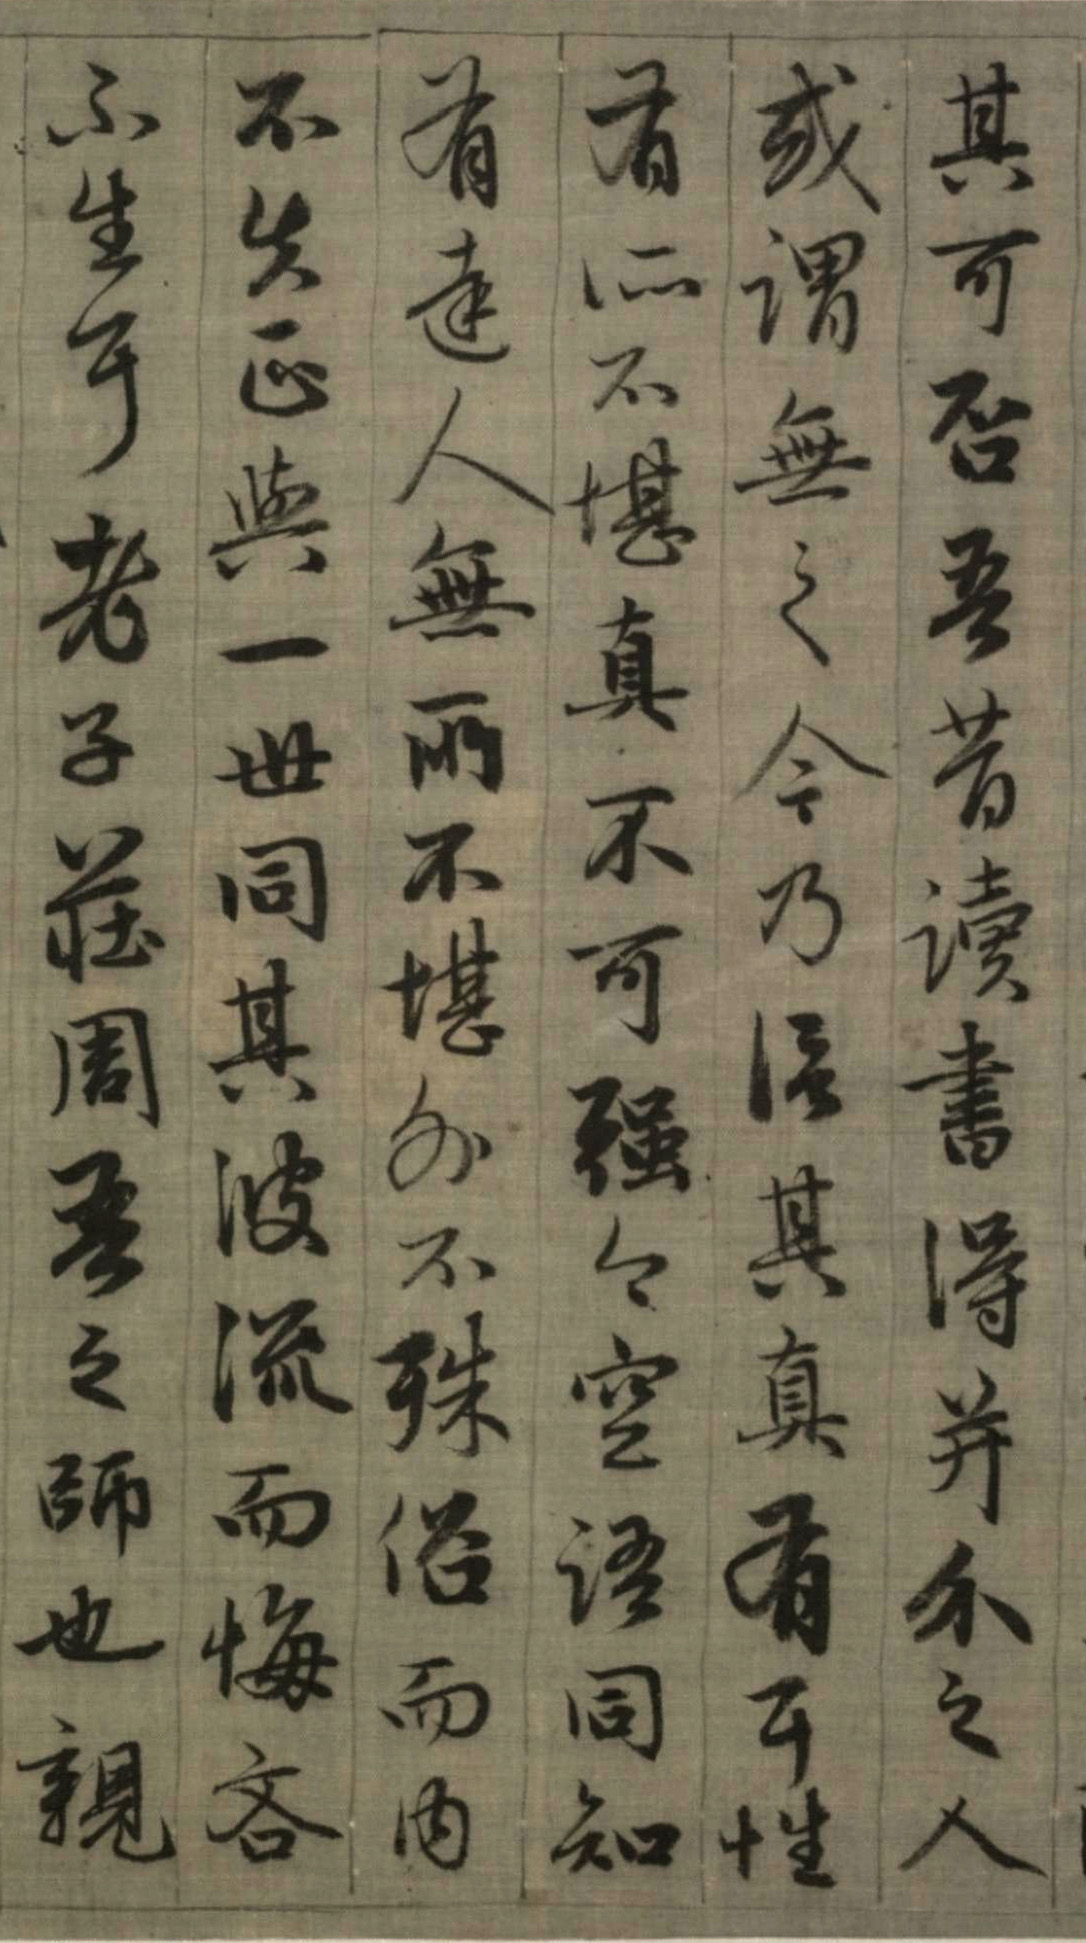 其可否吾昔讀書得并介之人
或謂無之今乃信其真有耳性
有所不堪真不可强今空語同知
有達人無所不堪外不殊俗而内
不失正與一世同其波流而悔吝
不生耳老子莊周吾之師也親